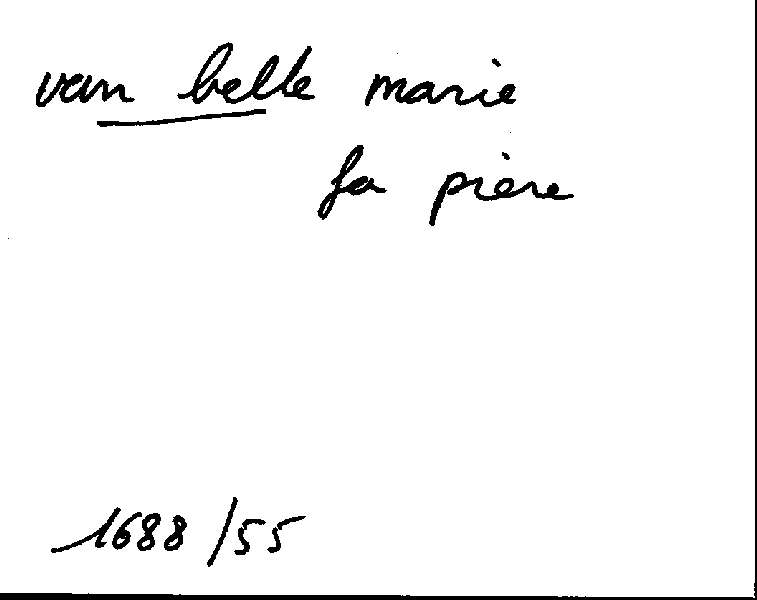 van belle marie
fa pière
1688/55